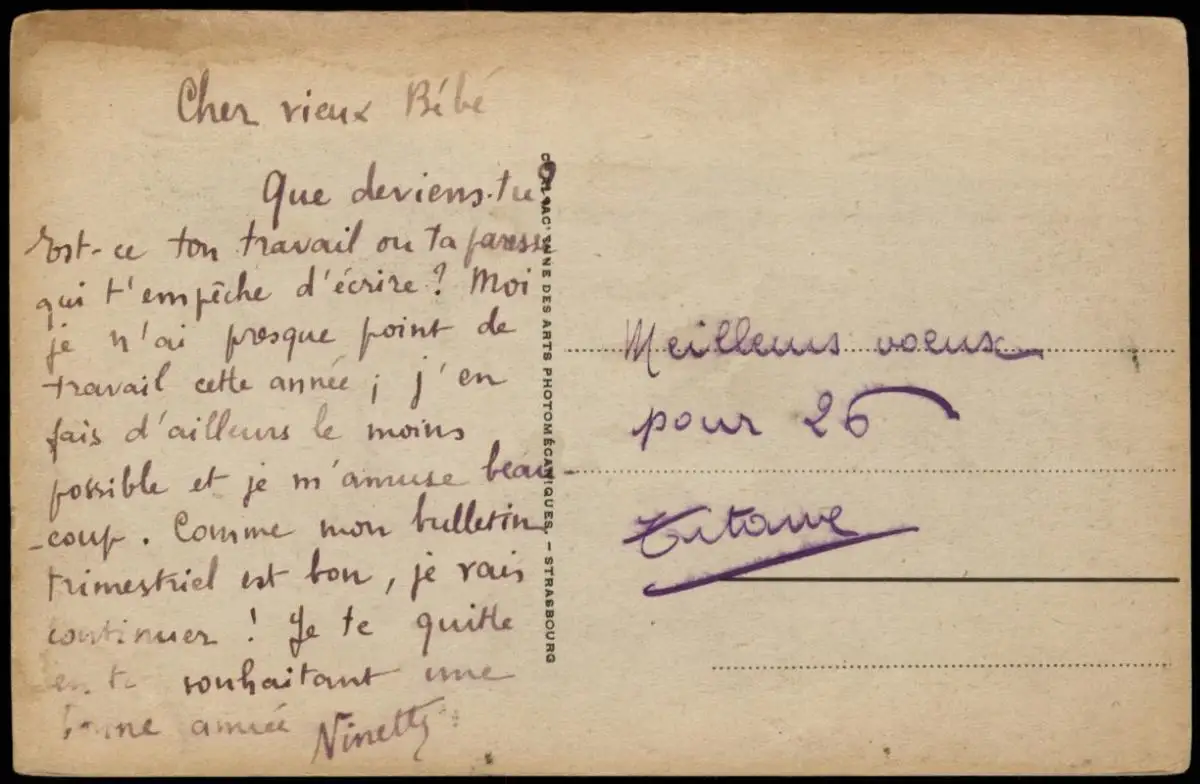 Cher vieux Bébé
Que deviens-tu?
Est-ce ton travail ou ta paresse
qui t'empêche d'écrire ? Moi
je n'ai presque point de
travail cette année ; j'en
fais d'ailleurs le moins
possible et je m'amuse beau-
-coup. Comme mon bulletin
trimestriel est bon, je vais
continuer ! Je te quitte
en te souhaitant une
bonne année Ninette
DES ARTS PHOTOMÉCANIQUES. – STRASBOURG
Meilleurs voeux
pour 26
Titane